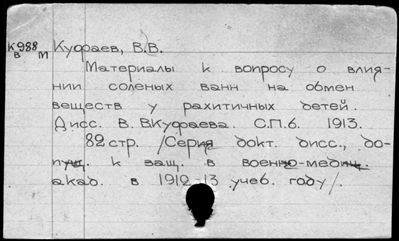 К988 Куфаев, В.В.
в м
Материалы к вопросу о влия-
нии соленых ванн на обмен
веществ у рахитичных детей.
Дисс. В. В.Куфаева. С.П.б. 1913.
82 стр. /Серия докт. дисс., до-
пущ. к защ. в военно-медиц.
акад. в 1912-13 учеб. году/.